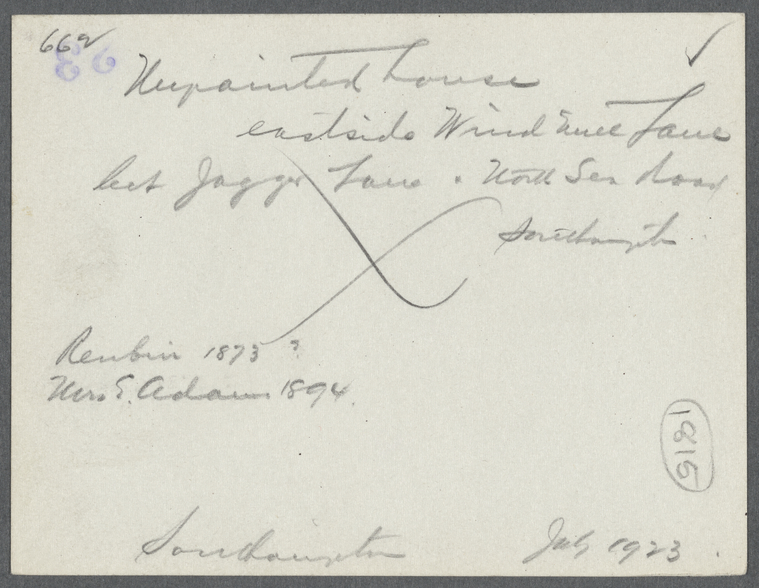 662
93
Unpainted house
eastside Wind Mill Lane
bet Jagger Lane & North Sea Road
Southampton
Reubin 1873 ?
Mrs E. Adams 1894.
1816
Southampton July 1923.